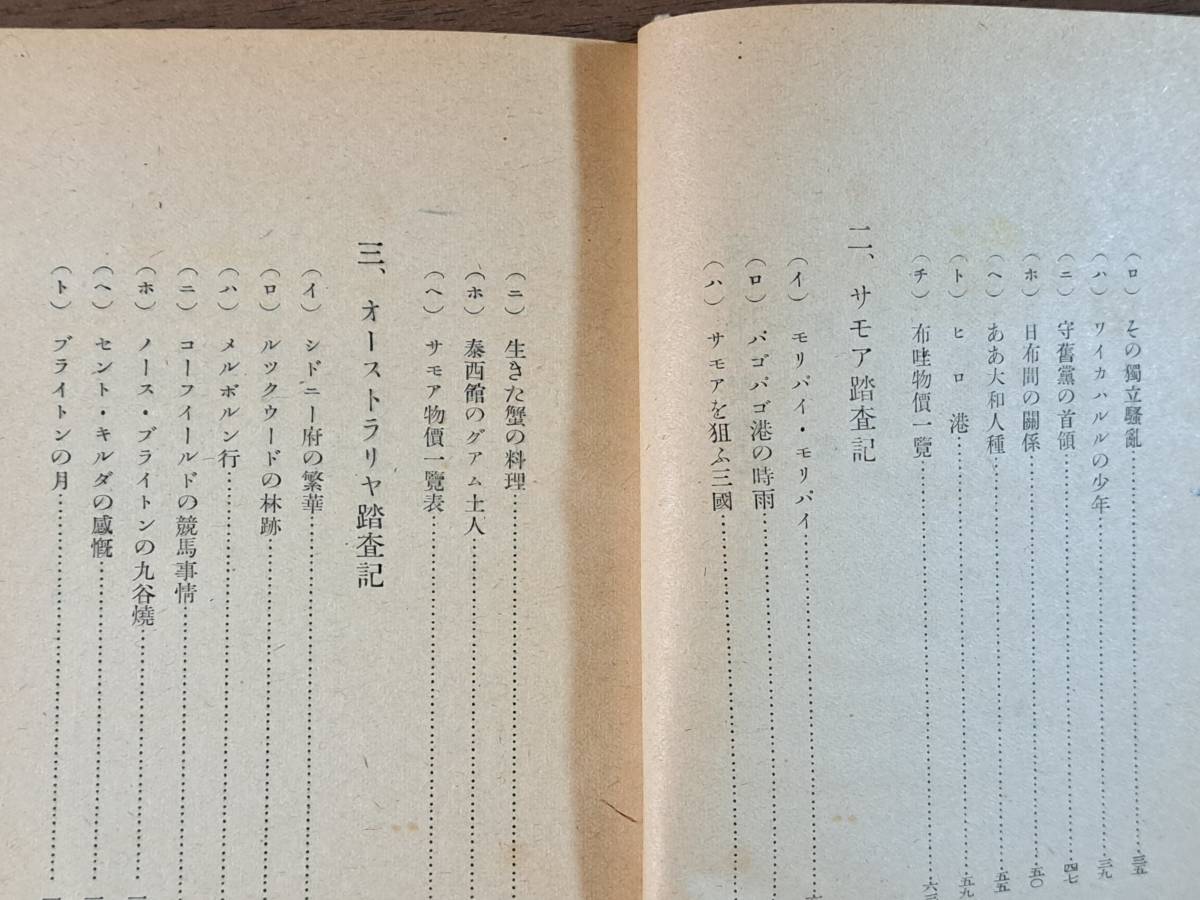 (ロ) その獨立騷亂……三五
(ハ) ワイカハルルの少年……三九
(ニ) 守舊黨の首領……四七
(ホ) 日布間の關係……五〇
(ヘ) ああ大和人種……五五
(ト) ヒロ港……五九
(チ) 布哇物價一覽……六三
二、サモア踏査記
(イ) モリバイ・モリバイ……
(ロ) パゴパゴ港の時雨……
(ハ) サモアを狙ふ三國……
(ニ) 生きた蟹の料理……
(ホ) 泰西館のグアム土人……
(ヘ) サモア物價一覽表……
三、オーストラリヤ踏査記
(イ) シドニー府の繁華……
(ロ) ルツクウードの林跡……
(ハ) メルボルン行……
(ニ) コーフイールドの競馬事情……
(ホ) ノース・ブライトンの九谷燒……
(ヘ) セント・キルダの感慨……
(ト) ブライトンの月……